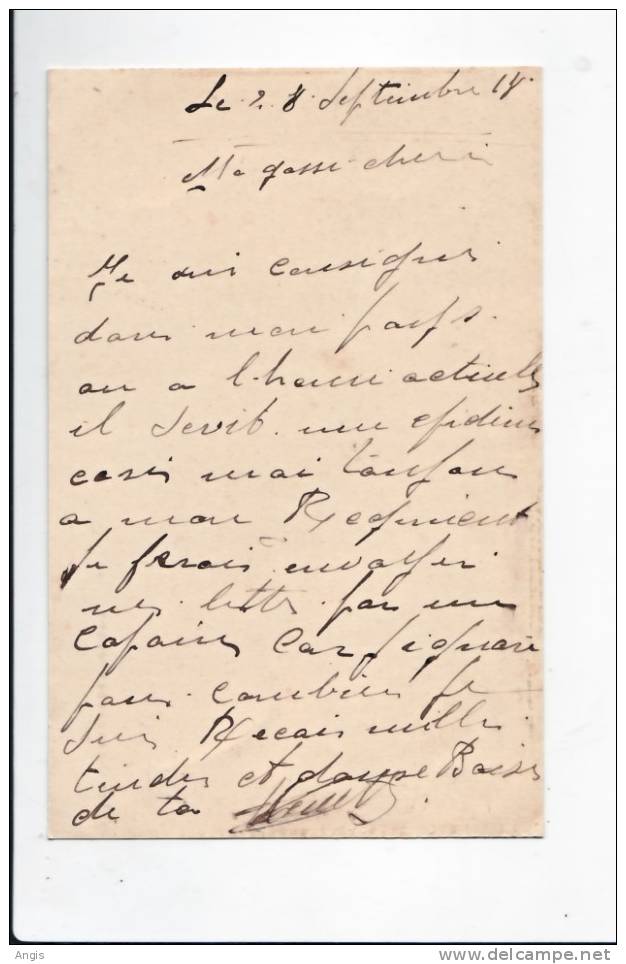 Le 28 Septembre 18.
Ma gosse cherie
Je sui consigner
dans mon pay.
ou a l'heure actuelle
il sevit. une epidimi
ecris moi toujour
a mon Regiment
Je ferais envoyer
mes lettre par un
Copain Car J ignore
pour combien Je
sui Recois mille
tendre et douse Baiser
de ta
Angis
www.delcampe.net